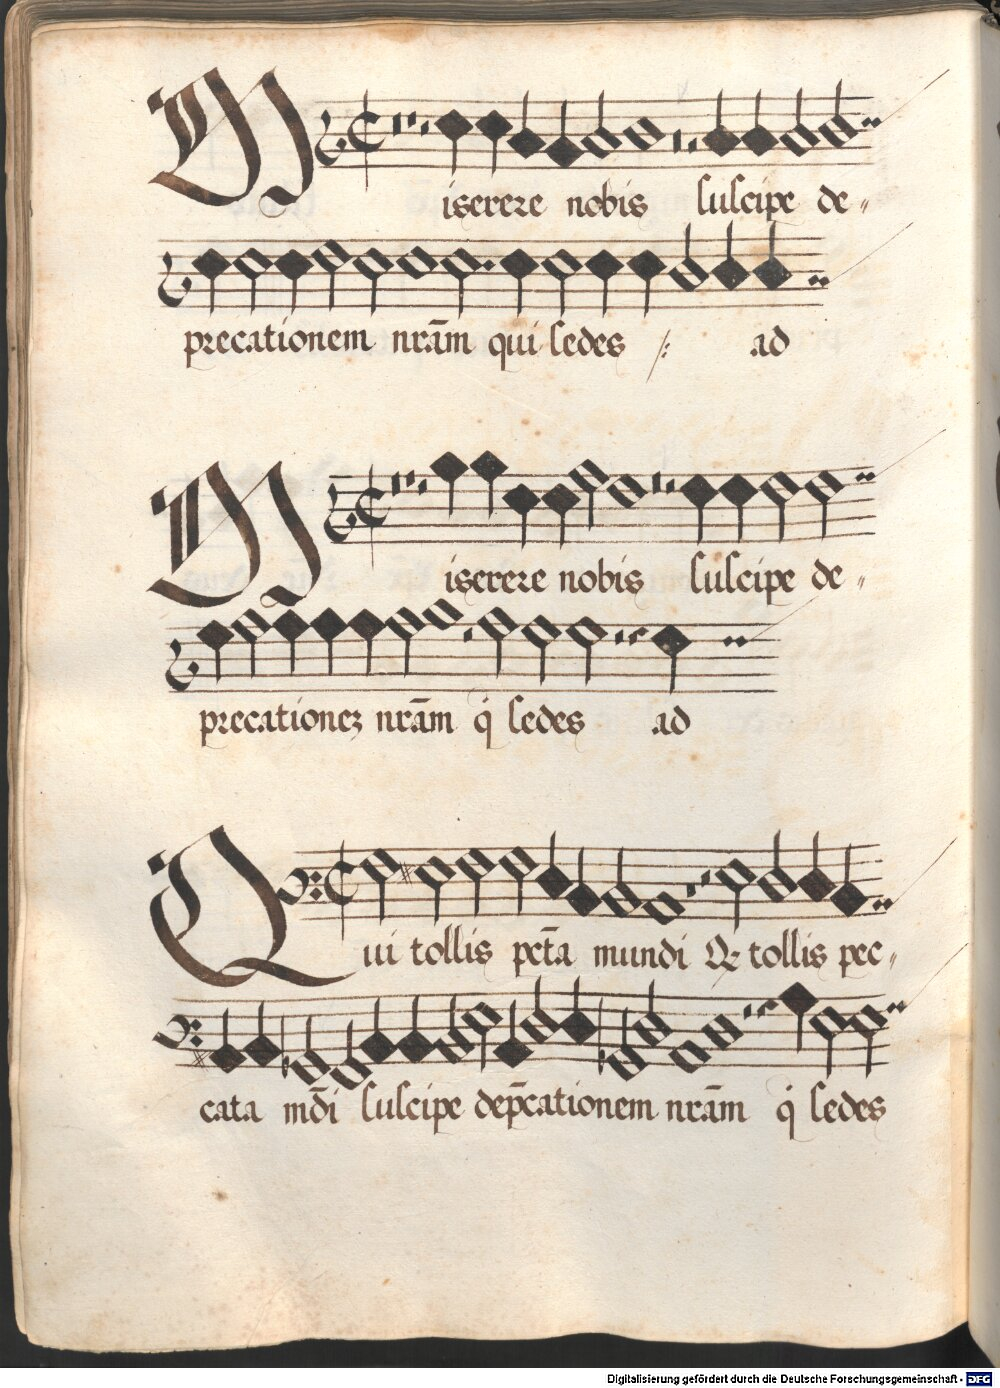 Miserere nobis suscipe de〃
precationem nr̄am qui sedes ad
Miserere nobis suscipe de〃
precationeꝫ nr̄am q̇ sedes ad
Qui tollis pct̄a mundi Q tollis pec〃
cata mūdi suscipe dep̄cationem nr̄am q̇ sedes
Digitalisierung gefördert durch die Deutsche Forschungsgemeinschaft - DFG